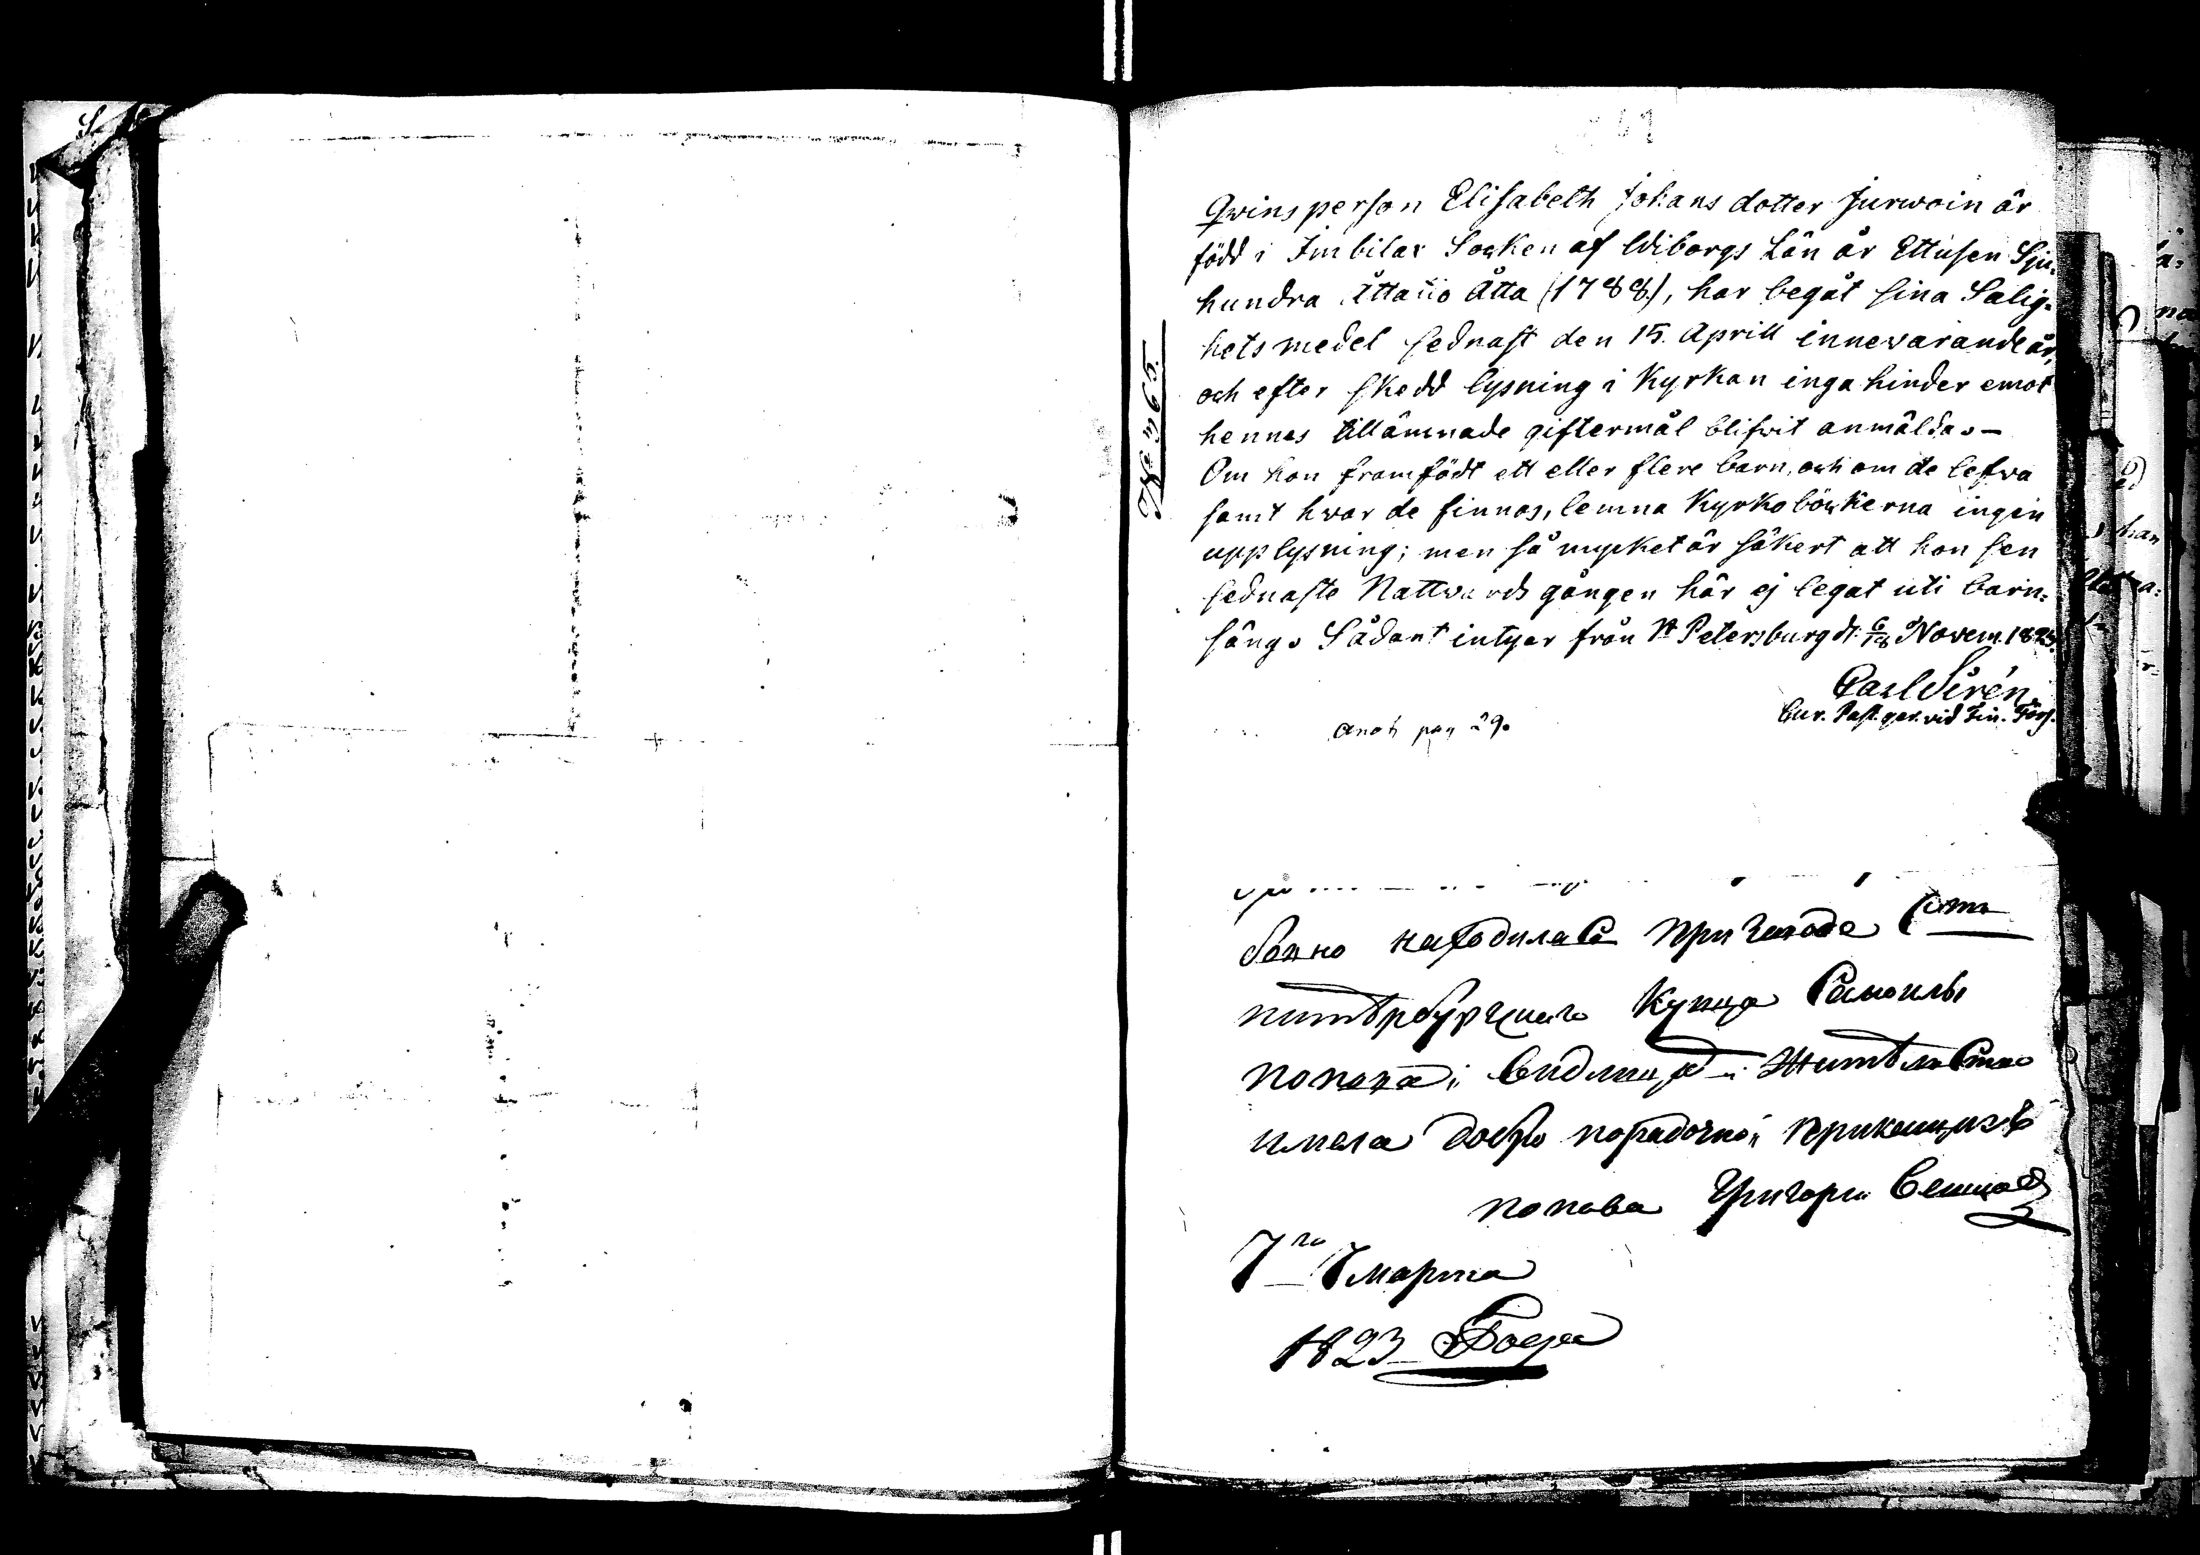 Qwinsperson Elisabeth Johans dotter Jurwoin är
född i Imbilax Socken af Wiborgs Län år Ettusen Sju-
hundra Åttatio Åtta (1788), har begåt sina Salig-
hets medel sednast den 15. Aprill innevarande år,
och efter skedd lysning i Kyrkan inga hinder emot
hennes tillämnade giftermål blifvit anmälda. –
Om hon framfödt ett eller flere barn, och om de lefva
samt hvar de finnas, lemna Kyrkoböckerna ingen
upplysning; men så mycket är säkert att hon sen
sednaste Nattwardsgången här ej legat uti barn-
säng. Sådant intyar från St Petersburg dt. 6/18 Novem. 1823.
Carl Sirén
Cur. Past. ger. vid Fin. Förs.
anot pag 29.
находилась при
купца
попова: жителство
имела добро порядочной прикащикъ
попова Григори
7го марта
1823 Года